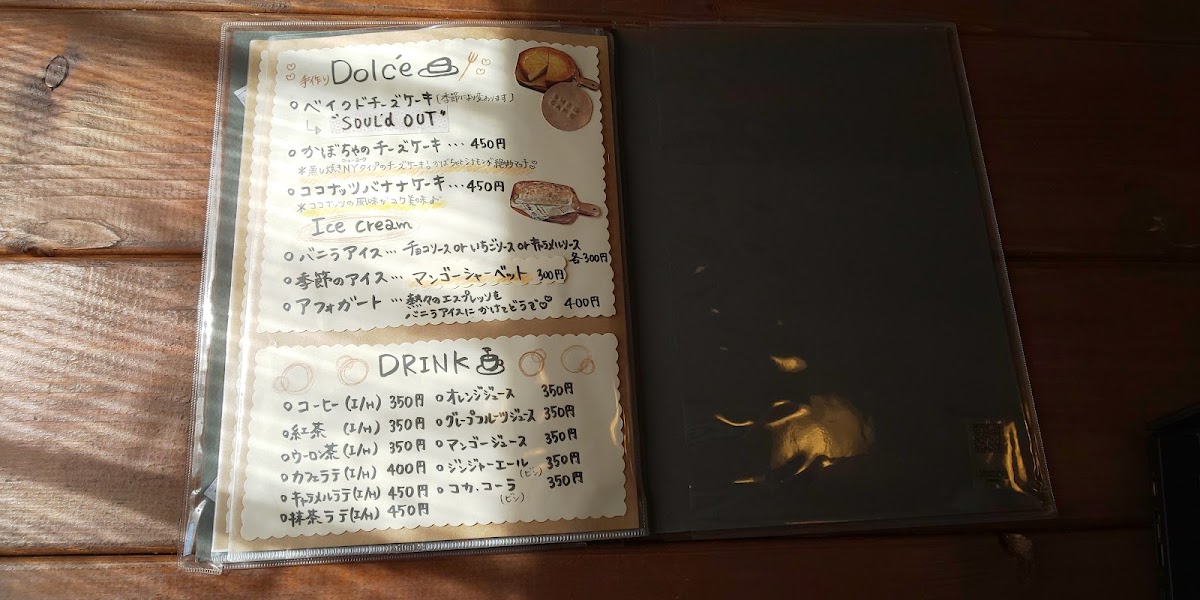 手作り Dolce
ベイクドチーズケーキ(季節により変わります)
"SOUL'd OUT"
かぼちゃのチーズケーキ … 450円
*蒸し焼きNYタイプのチーズケーキ!かぼちゃとシナモンが絶妙マッチ
ココナッツバナナケーキ … 450円
*ココナッツの風味がコク美味♪
Ice cream
バニラアイス … チョコソース or いちごソース or キャラメルソース
各300円
季節のアイス … マンゴーシャーベット 300円
アフォガート … 熱々のエスプレッソを
バニラアイスにかけてどうぞ 400円
DRINK
コーヒー (I/H) 350円
紅茶 (I/H) 350円
ウーロン茶 (I/H) 350円
カフェラテ (I/H) 400円
キャラメルラテ (I/H) 450円
抹茶ラテ (I/H) 450円
オレンジジュース 350円
グレープフルーツジュース 350円
マンゴージュース 350円
ジンジャーエール (ビン) 350円
コカ・コーラ (ビン) 350円